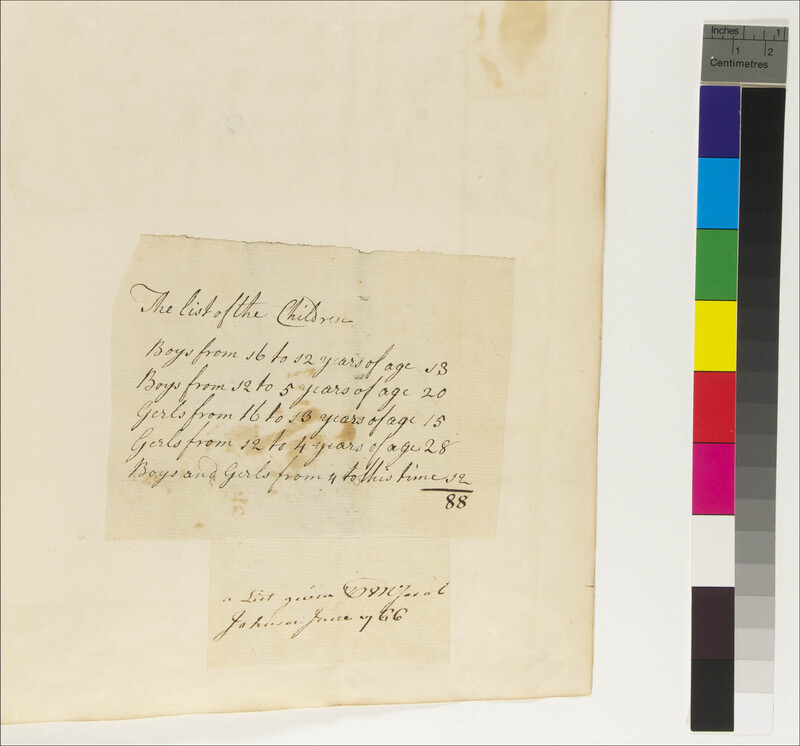 Inches 1
1 2
Centimetres
The list of the Children
Boys from 16 to 12 years of age 13
Boys from 12 to 5 years of age 20
Girls from 16 to 13 years of age 15
Girls from 12 to 4 years of age 28
Boys and Girls from 4 to this time 12
88
a List given Jacob
Johnson June 1766